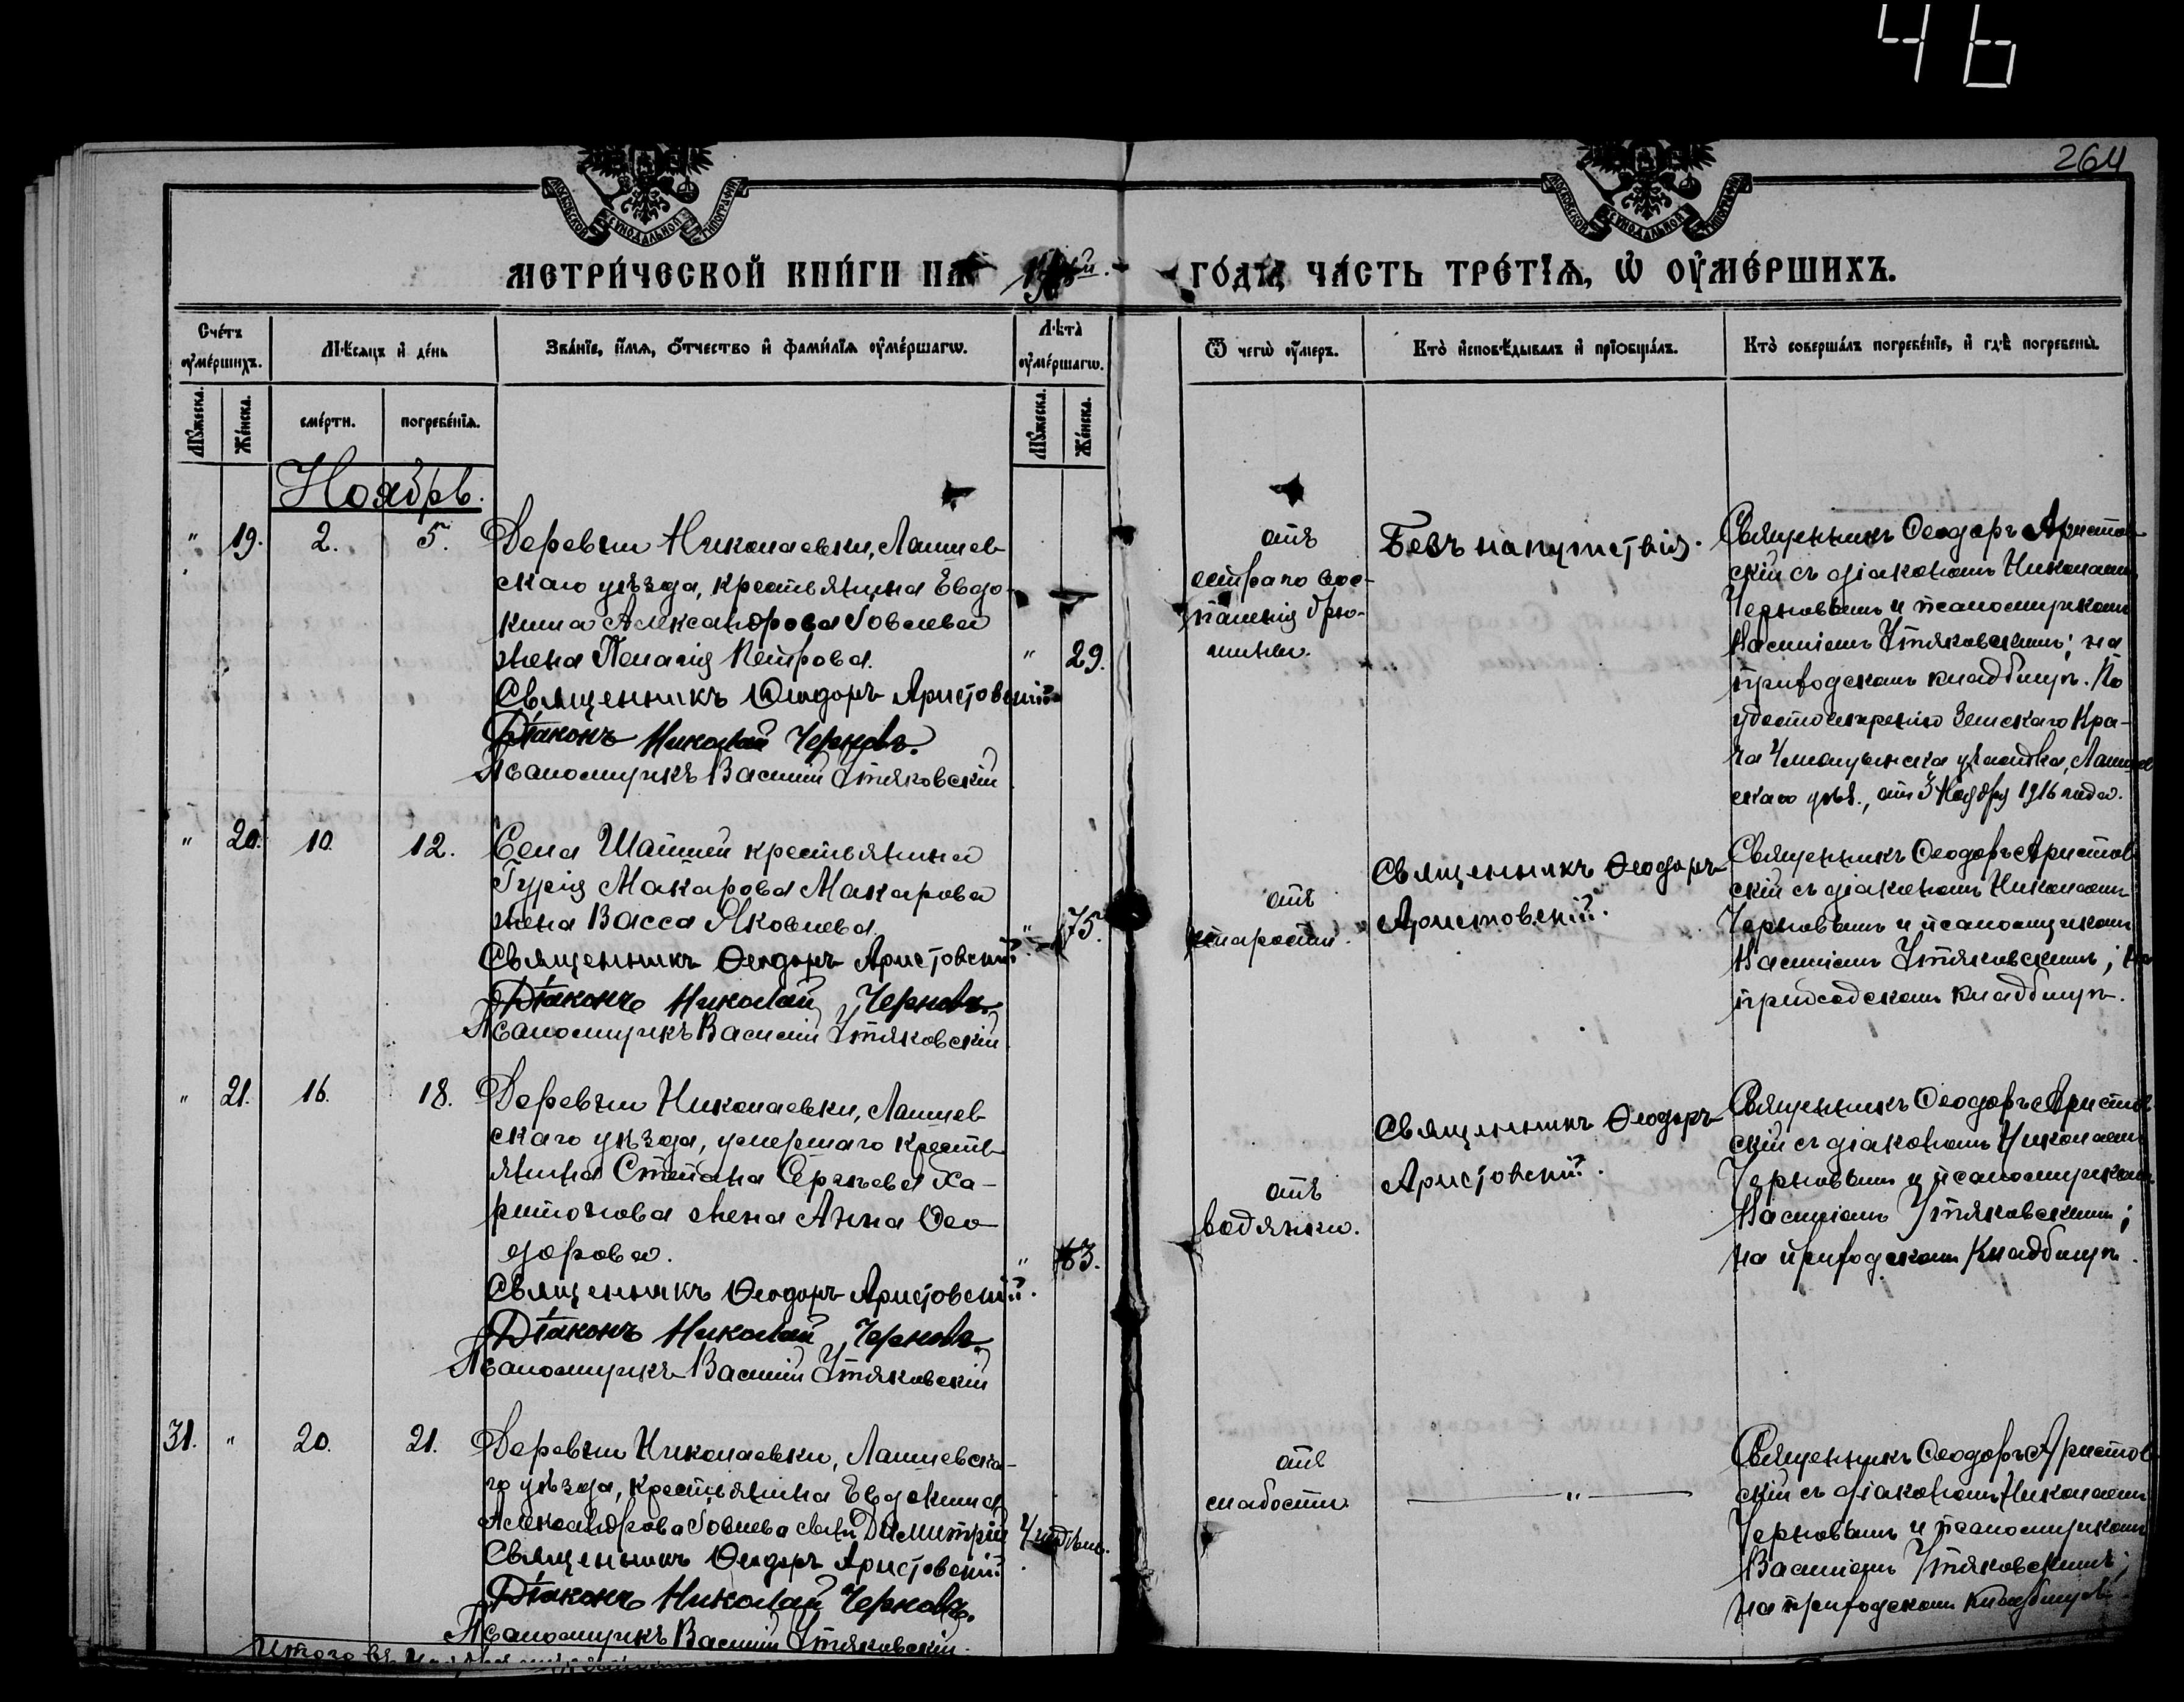 46
264
МОСКОВСКОЙ СѴНОДАЛЬНОЙ ТИПОГРАФІИ
МОСКОВСКОЙ СѴНОДАЛЬНОЙ ТИПОГРАФІИ
МЕТРИ́ЧЕСКОЙ КНИ́ГИ НА
ГО́ДЪ, ЧА́СТЬ ТРЕ́ТІѦ, Ѡ҆ ОУ҆МЕ́РШИХЪ.
Сче́тъ оу҆ме́ршихъ.
Мѣ́сяцъ и҆ де́нь
Зва́нїе, и҆́мѧ, ѻ҆́тчество и҆ фами́лїѧ оу҆ме́ршагѡ.
Лѣ́та оу҆ме́ршагѡ.
Ѿ чегѡ̀ оу҆́меръ.
Кто̀ и҆сповѣ́дывалъ и҆ прїѻбща́лъ.
Кто̀ соверша́лъ погребе́нїе, и҆ гдѣ̀ погребены̀.
Мꙋ́жеска.
Же́нска.
сме́рти.
погребе́нїѧ.
Мꙋ́жеска.
Же́нска.
Ноябрь.
" 19. 2. 5.
Деревни Николаевки, Лаишев-
скаго уѣзда, крестьянина Евдо-
кима Александрова Говлева
жена Пелагія Петрова. " 29.
Священникъ Ѳеодоръ Аристовскій
Діаконъ Николай Черновъ.
Псаломщикъ Василій Утяковскій
отъ
остраго вос-
паленія брю-
шины.
Безъ напутствія.
Священникъ Ѳеодоръ Аристов
скій съ діакономъ Николаемъ
Черновымъ и псаломщикомъ
Василіемъ Утяковскимъ; на
приходскомъ кладбищѣ. По
удостовѣренію Земскаго Вра-
ча участка, Лаишев
скаго уѣз., отъ 3 Ноября 1916 года.
" 20. 10. 12.
Села Шатши крестьянина
Гурія Макарова Макарова
жена Васса Яковлева. " 75.
Священникъ Ѳеодоръ Аристовскій
Діаконъ Николай Черновъ.
Псаломщикъ Василій Утяковскій
отъ
старости.
Священникъ Ѳеодоръ
Аристовскій.
Священникъ Ѳеодоръ Аристов
скій съ діакономъ Николаемъ
Черновымъ и псаломщикомъ
Василіемъ Утяковскимъ; на
приходскомъ кладбищѣ.
" 21. 16. 18.
Деревни Николаевки, Лаишев
скаго уѣзда, умершаго кресть
янина Степана Сергѣева Ха-
ритонова жена Анна Ѳео-
дорова. " 63.
Священникъ Ѳеодоръ Аристовскій.
Діаконъ Николай Черновъ.
Псаломщикъ Василій Утяковскій
отъ
водянки.
Священникъ Ѳеодоръ
Аристовскій.
Священникъ Ѳеодоръ Аристов
скій съ діакономъ Николаемъ
Черновымъ и псаломщикомъ
Василіемъ Утяковскимъ;
на приходскомъ кладбищѣ.
31. " 20. 21.
Деревни Николаевки, Лаишевска-
го уѣзда, крестьянина Евдокима
Александрова Говлева сынъ Димитрій
Священникъ Ѳеодоръ Аристовскій.
Діаконъ Николай Черновъ.
Псаломщикъ Василій Утяковскій.
отъ
слабости.
"
Священникъ Ѳеодоръ Аристов
скій съ діакономъ Николаемъ
Черновымъ и псаломщикомъ
Василіемъ Утяковскимъ;
на приходскомъ кладбищѣ.
Итого въ